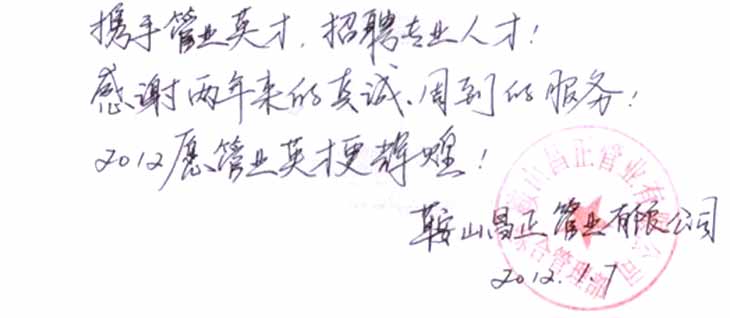 携手管业英才，招聘专业人才！
感谢两年来的真诚、周到的服务！
2012愿管业英才更辉煌！
鞍山昌正管业有限公司
2012.1.7
鞍山昌正管业有限公司
综合管理部